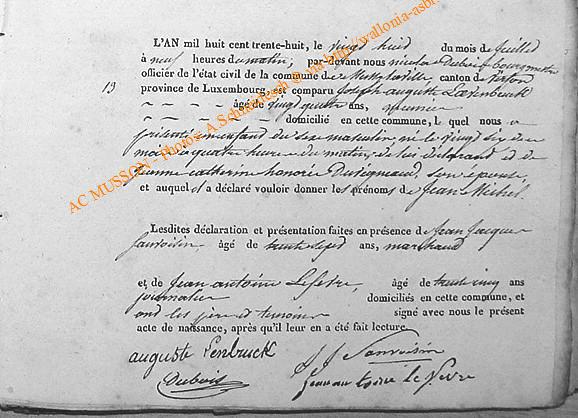 L'AN mil huit cent trente-huit, le vingt huit du mois de juillet
à neuf heures du matin, par-devant nous nicolas Dubois bourgmestre
officier de l'état civil de la commune de canton de
13
province de Luxembourg, est comparu joseph auguste
âgé de vingt quatre ans,
domicilié en cette commune, lequel nous a
présenté un enfant du sexe masculin, né le vingt six du
mois à quatre heures du matin, de lui déclarant et de
jeanne catherine honorée son épouse,
et auquel il a déclaré vouloir donner les prénoms de Jean Michel.
Lesdites déclaration et présentation faites en présence de Jean Jacques
Sauvoisin, âgé de trente sept ans, marchand
et de Jean antoine Lefevre, âgé de trente cinq ans
journalier domiciliés en cette commune, et
ont les père et temoins signé avec nous le présent
acte de naissance, après qu'il leur en a été fait lecture.
auguste Lenbruck
J J Sauvoisin
Dubois
jean antoine le fevre
AC MUSSON - Photos: A.Schmit @ via http://wallonia-asbl